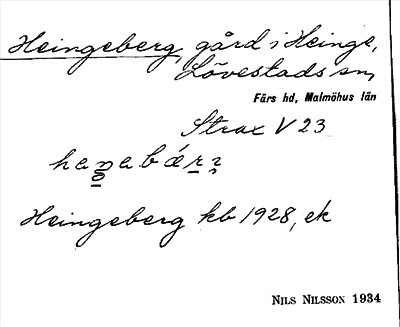 Heingeberg, gård i Heinge,
Lövestads sn,
Färs hd, Malmöhus län
Strax V 23
Heingeberg kb 1928, ek
NILS NILSSON 1934